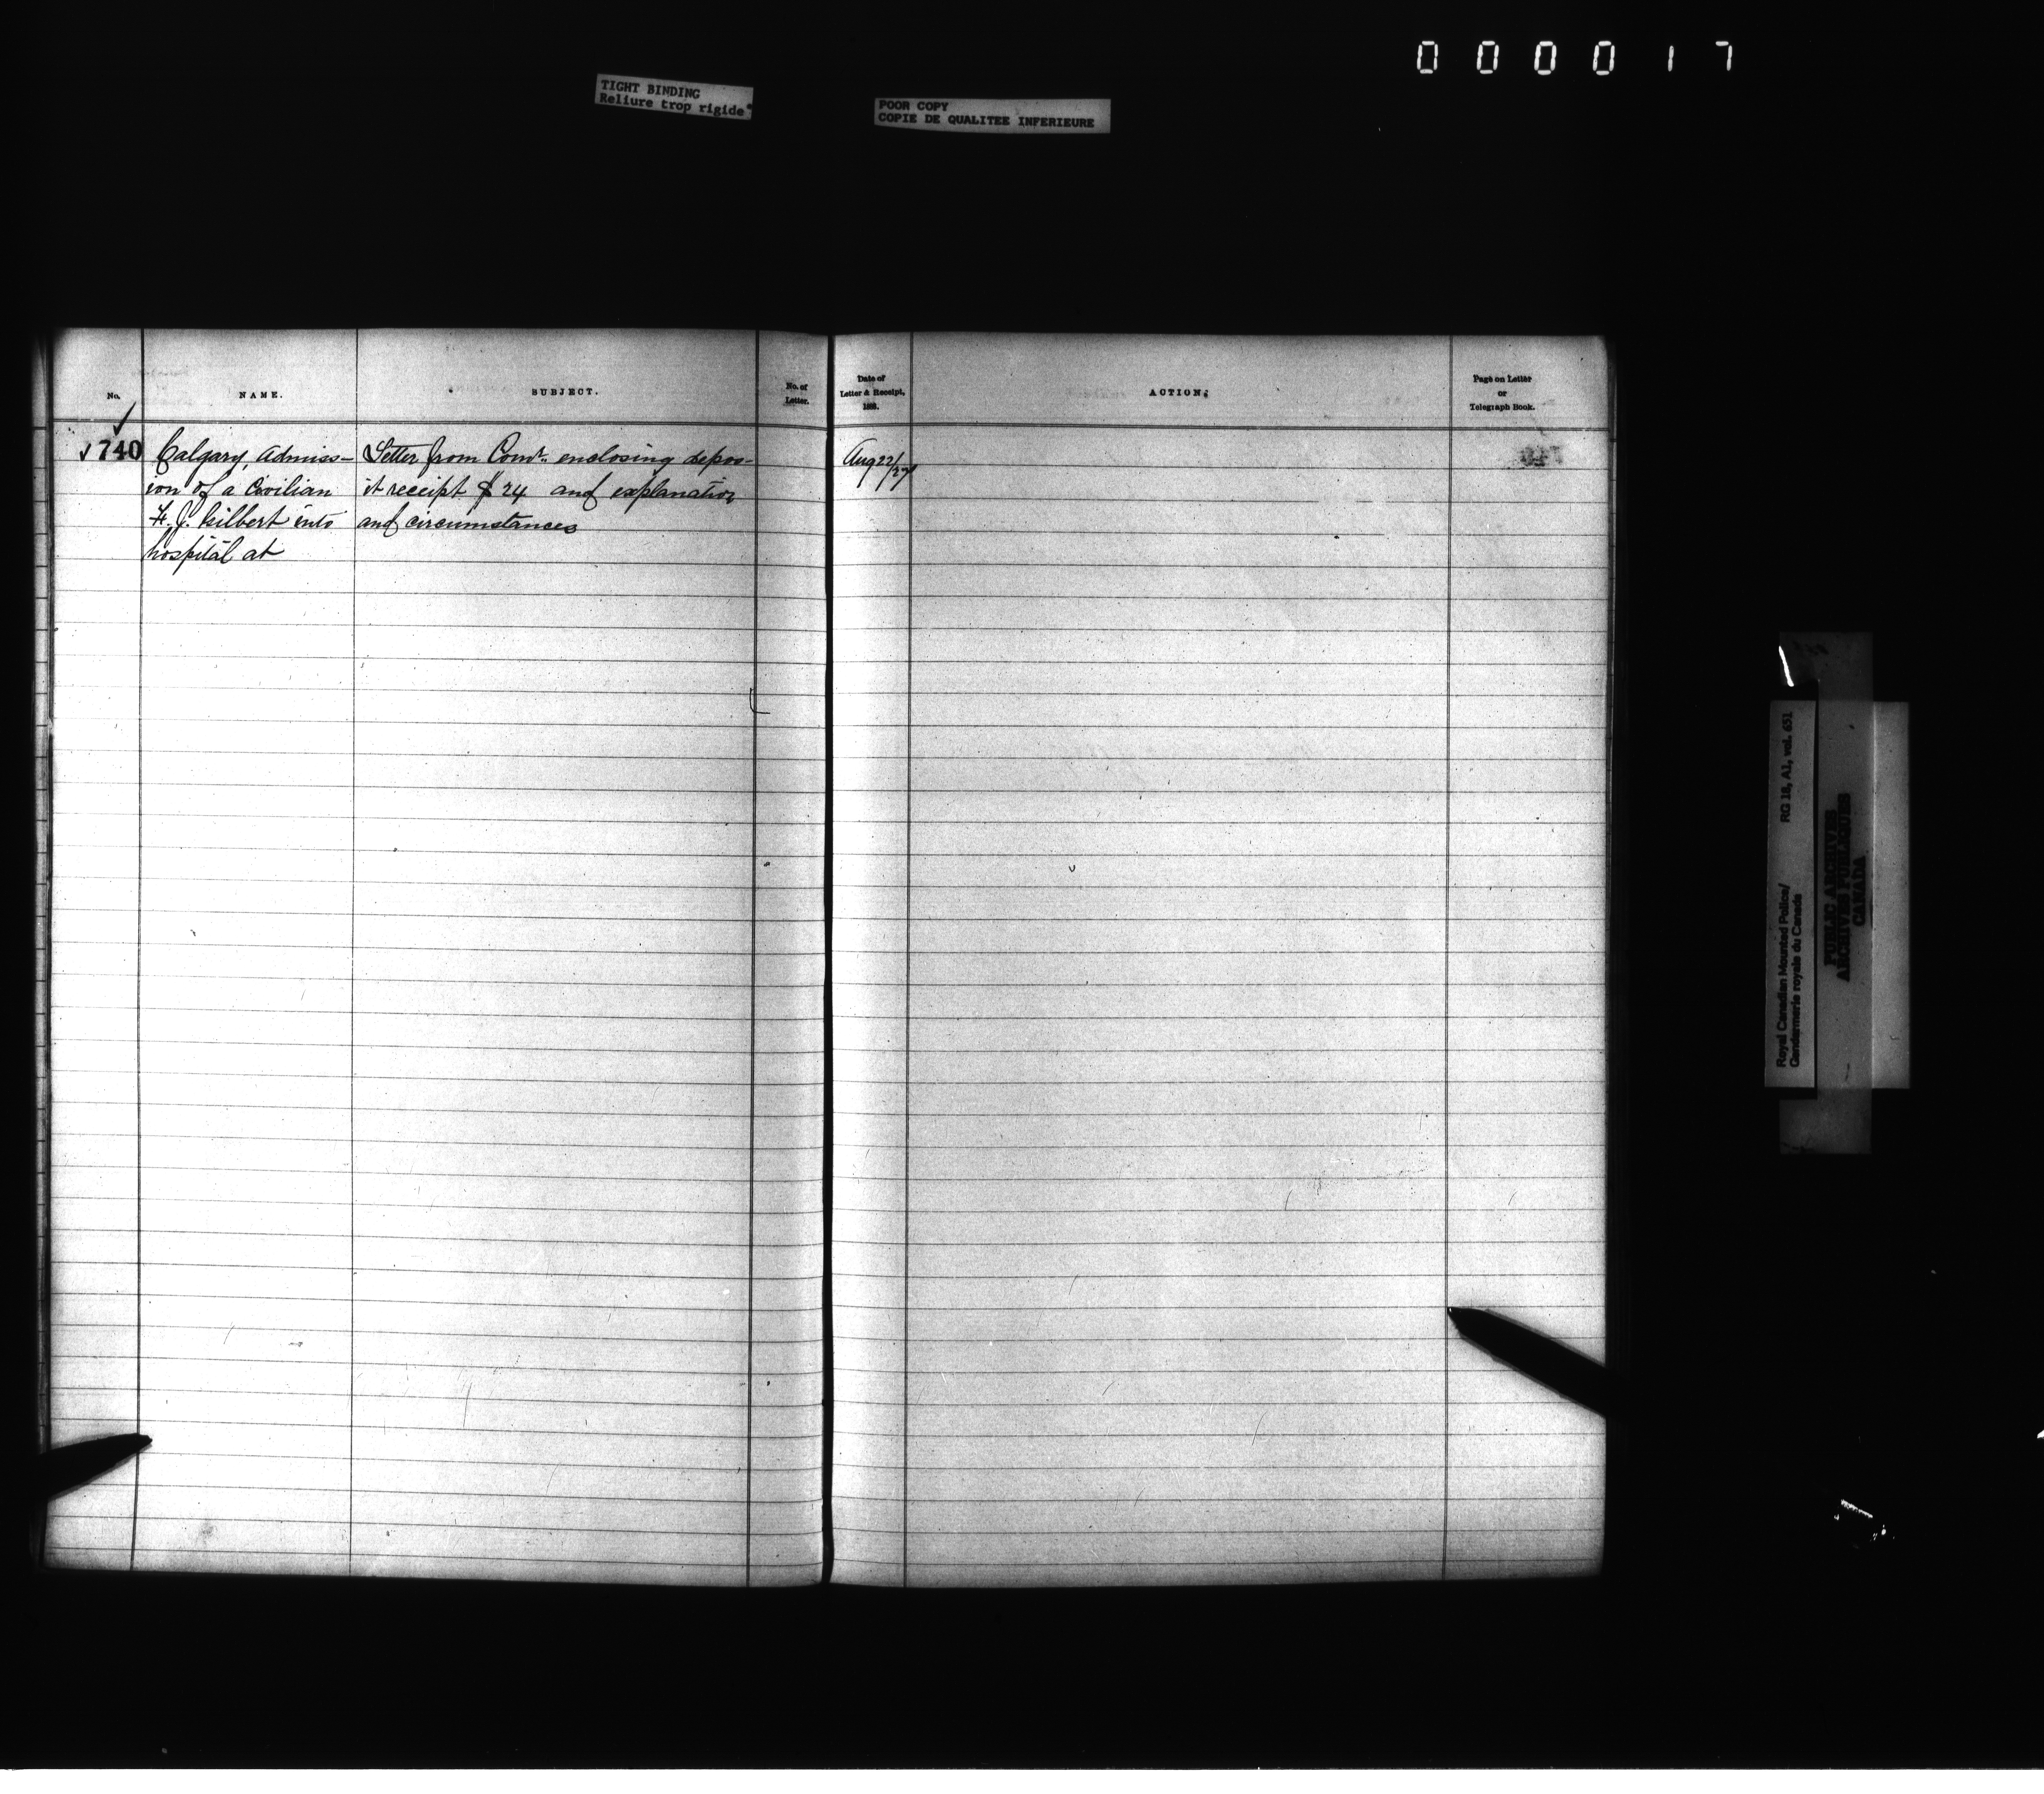 0 0 0 0 1 7
TIGHT BINDING
Reliure trop rigide
POOR COPY
COPIE DE QUALITEE INFERIEURE
No.
NAME.
SUBJECT.
No. of
Letter.
Date of
Letter & Receipt,
188.
ACTION.
Page on Letter
or
Telegraph Book.
740
Calgary, Admiss-
ion of a Civilian
F. J. Gilbert into
hospital at
Letter from Comr. enclosing depos-
it receipt $24 and explanation
and circumstances
Aug 22/27
RG 18, A1, vol. 651
Royal Canadian Mounted Police/
Gendarmerie royale du Canada
PUBLIC ARCHIVES
ARCHIVES PUBLIQUES
CANADA